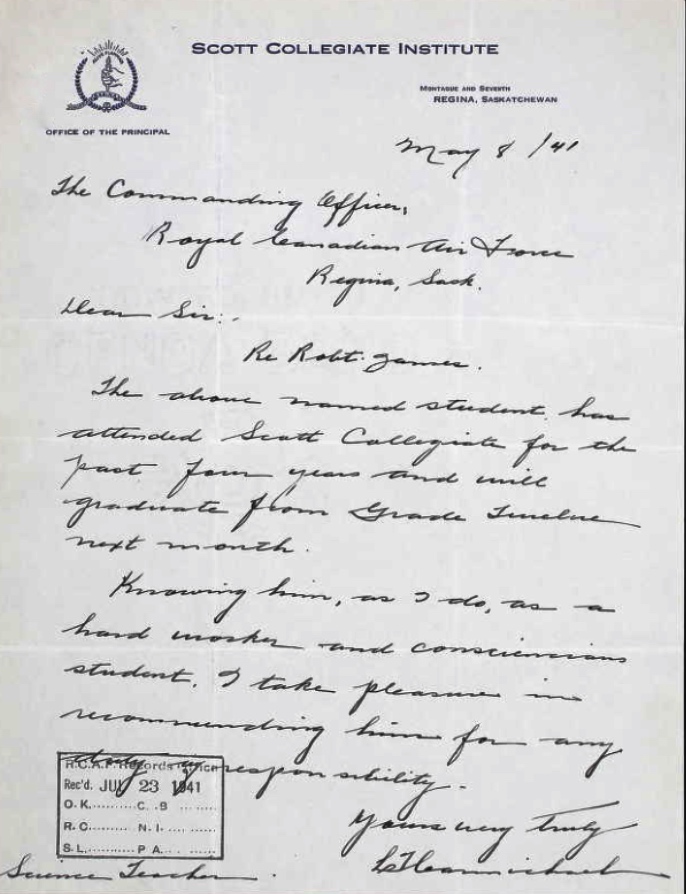 SCOTT COLLEGIATE INSTITUTE
MONTAGUE AND SEVENTH
REGINA, SASKATCHEWAN
OFFICE OF THE PRINCIPAL
May 8 /41
The Commanding Officer,
Royal Canadian Air Force
Regina, Sask.
Dear Sir:
Re Robt. James.
The above named student, has
attended Scott Collegiate for the
past four years and will
graduate from Grade Twelve
next month.
Knowing him, as I do, as a
hard worker and consciencious
student, I take pleasure in
recommending him for any
duty or responsibility.
R.C.A.F. Records Office
Rec'd. JUL 23 1941
O.K. .......... C. .B ..........
R.C. .......... N.I. ..........
S.L. .......... P A. ..........
Yours very truly
Science Teacher.